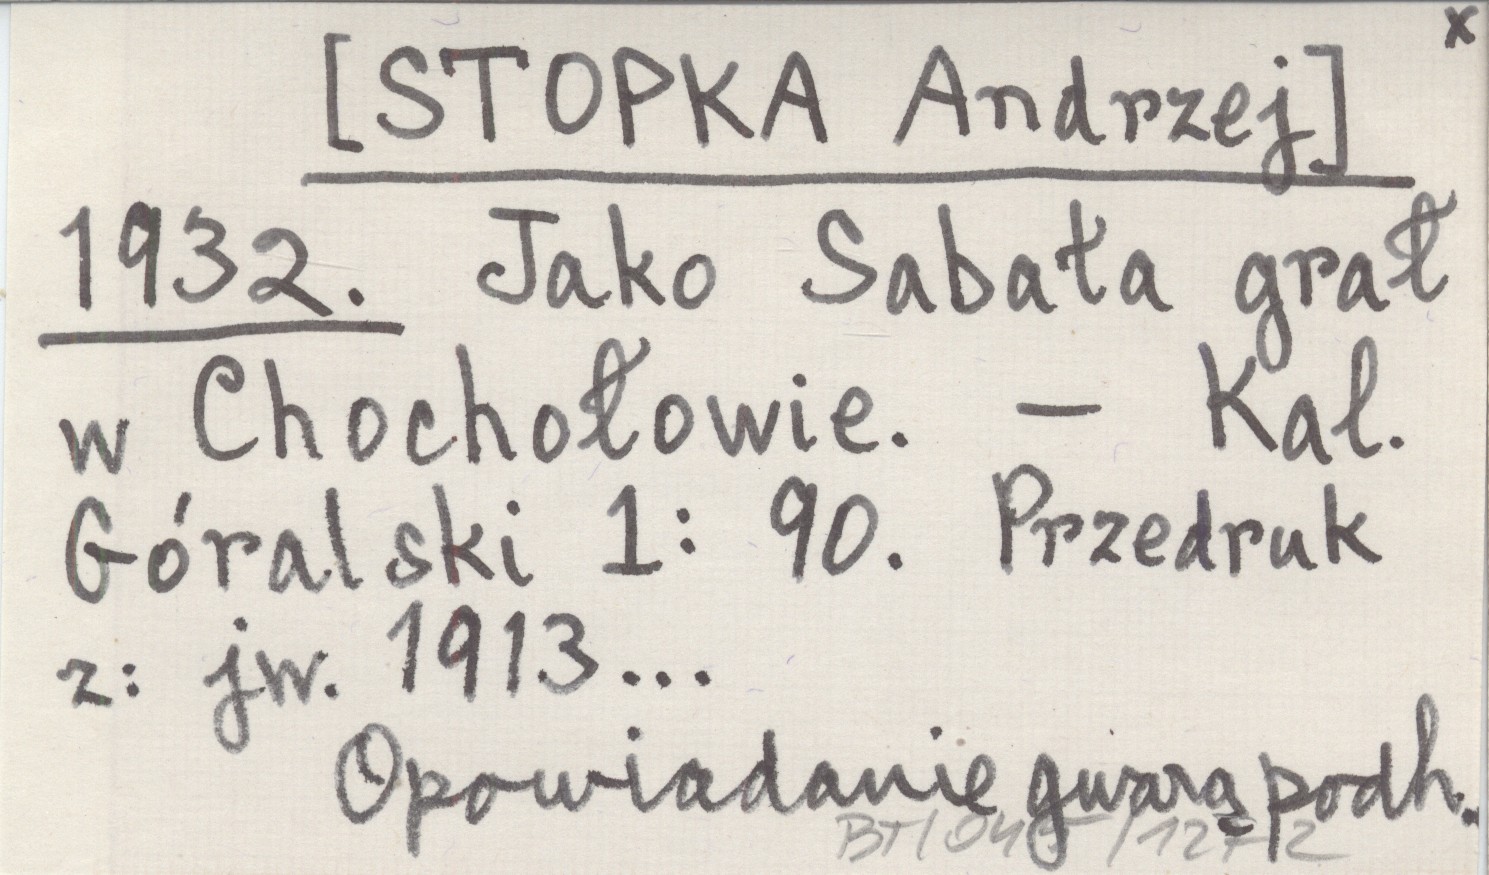 x
[STOPKA Andrzej]
1932. Jako Sabała grał
w Chochołowie. — Kal.
Góralski 1: 90. Przedruk
z: jw. 1913...
Opowiadanie gwarą podh.